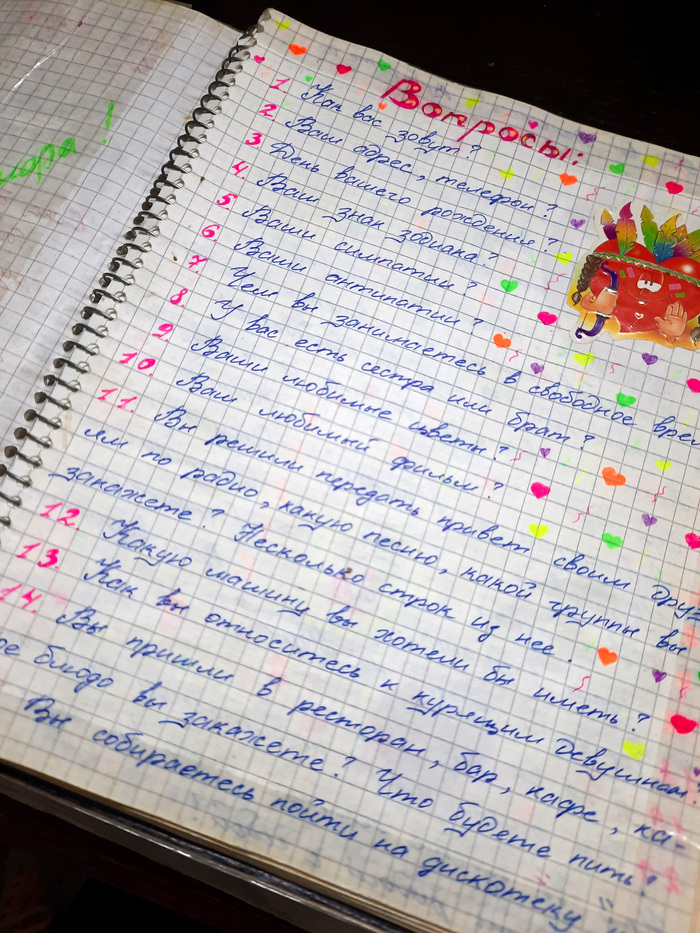 Вопросы:
1 Как вас зовут?
2 Ваш адрес, телефон?
3 День вашего рождения?
4. Ваш знак зодиака?
5 Ваши симпатии?
6 Ваши антипатии?
7 Чем вы занимаетесь в свободное врем
8. У вас есть сестра или брат?
9. Ваши любимые цветы?
10. Ваш любимый фильм?
11. Вы решили передать привет своим друз
ям по радио, какую песню, какой группы вы
закажете? Несколько строк из нее.
12. Какую машину вы хотели бы иметь?
13. Как вы относитесь к курящим девушкам?
14. Вы пришли в ресторан, бар, кафе, ка-
ое блюдо вы закажете? Что будете пить?
Вы собираетесь пойти на дискотеку